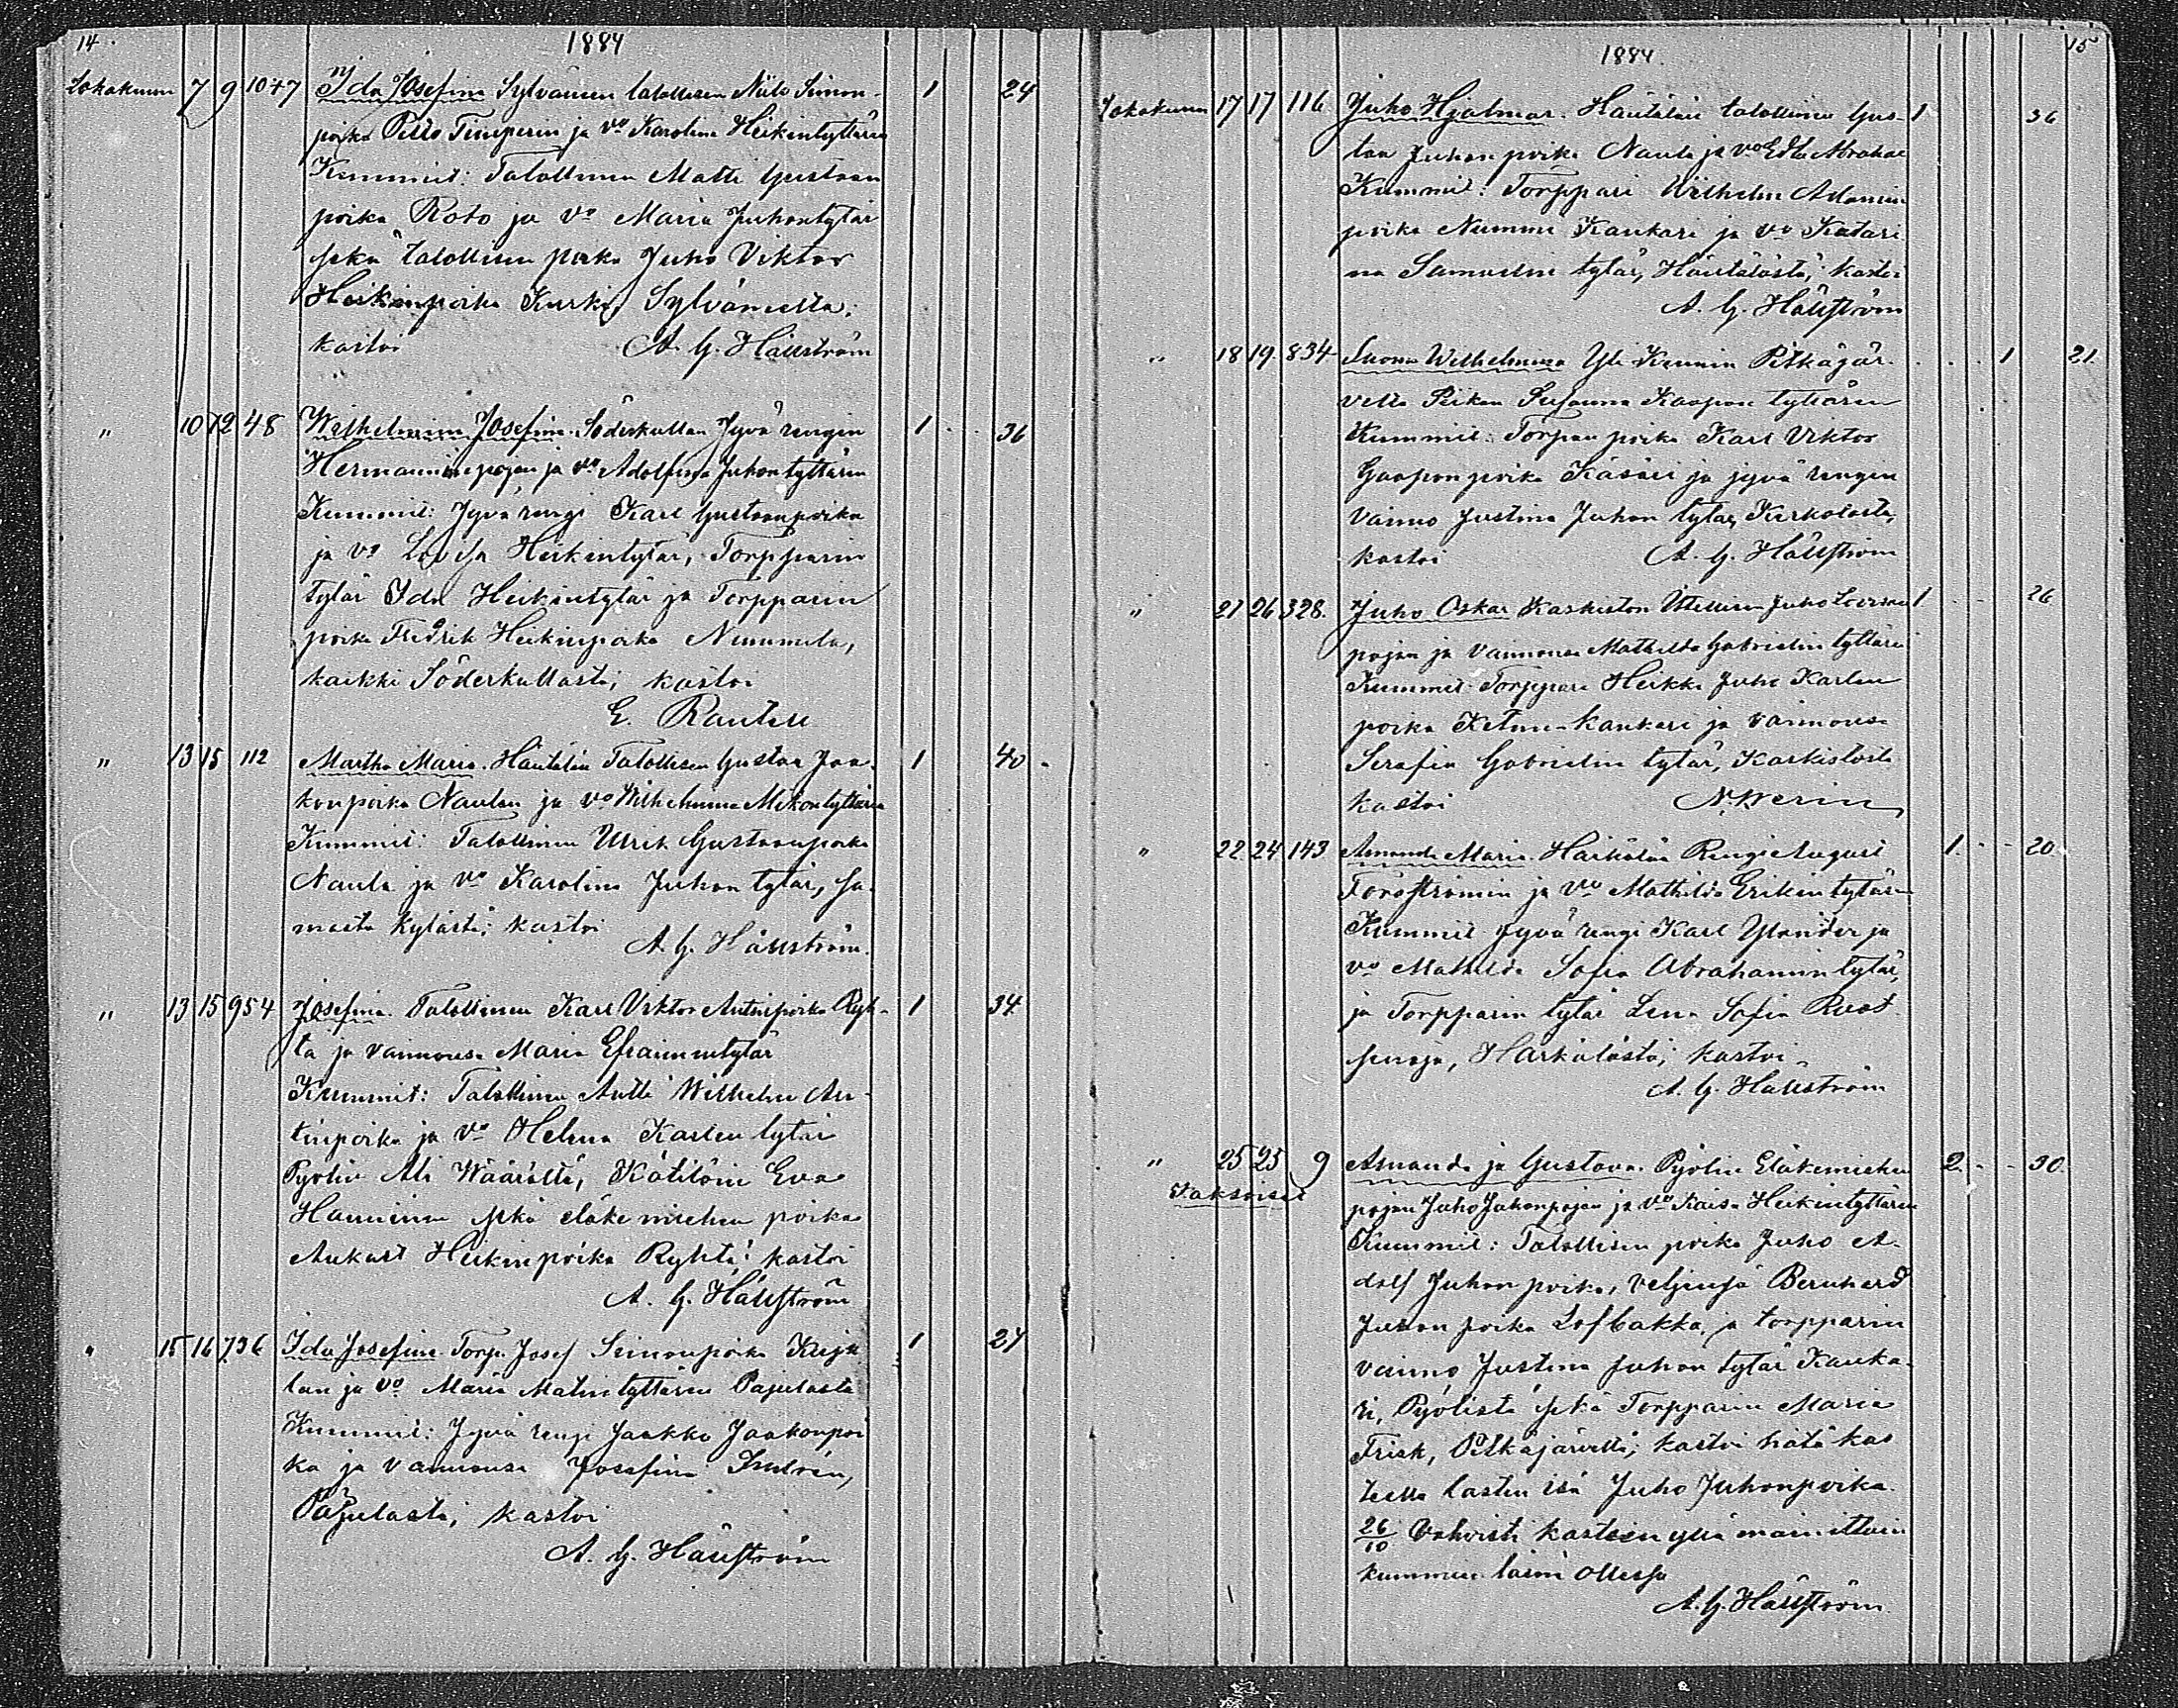 14.
1884
Lokakuun 7 9 1047 Ida Josefina Sylvänän talollisen Niilo Simon- 1 24
poika Pello Timperin ja vo Karolina Heikintyttären
Kummit: Talollinen Matti Gustaan
poika Roto ja vo Maria Juhontytär
sekä talollisen poika Juho Viktor
Heikinpoika Kurki, Sylvänältä;
kastoi A. G. Hällström
" 10 12 48 Wilhelmiina Josefina. Söderkullan Jyvä rengin 1 36
Hermanninpojan ja vo Adolfina Juhontyttären
Kummit: Jyvä rengi Karl Gustaanpoika
ja vo Lovisa Heikintytär, Torpparin
tytär Ida Heikintytär ja Torpparin
poika Fredrik Heikinpoika Nummela,
kaikki Söderkullasta; kastoi
E. Rautell
" 13 15 112 Martha Maria. Häntälän Talollisen Gustaa Jaa- 1 40
konpoika Naulan ja vo Wilhelmina Mikontyttären
Kummit: Talollinen Ulrik Gustaanpoika
Naula ja vo Karolina Juhon tytär, sa-
masta kylästä; kastoi
A. G. Hällström.
" 13 15 954 Josefina. Talollinen Karl Viktor Antinpoika Ryh- 1 34
tä ja vaimonsa Maria Efraimintytär
Kummit: Talollinen Antti Wilhelm An-
tinpoika ja vo Helena Karlen tytär
Pyölin Ali Wäärältä, Kätilöin Eva
Hanninen sekä eläkemiehen poika
Aukust Heikinpoika Ryhtä; kastoi
A. G. Hällström
" 15 16 736 Ida Josefina. Torp. Josef Simonpoika Kirja 1 27
lan ja vo Maria Matintyttären Pajulasta
Kummit: Jyvä rengi Jaakko Jaakonpoi
ka ja vaimonsa Josefina
Pajulasta; kastoi
A. G. Hällström
15
1884.
Lokakuun 17 17 116 Juho Hjalmar. Häntälän talollinen Gus- 1 36
taa Juhon poika Naula ja vo Edla Abraha
Kummit: Torppari Wilhelm Adamin
poika Nummi Kankari ja vo Katari
na Samuelin tytär, Häntälästä; kastoi
A. G. Hällström
" 18 19 834 Suoma Wilhelmina Yli Kinnin Pitkäjär- 1 21
veltä Piikan Susanna Kaapon tyttären
Kummit: Torpan poika Karl Viktor
Gaaponpoika Käsäri ja jyvä rengin
vaimo Justina Juhon tytär Kirkolasta,
kastoi A. G. Hällström
" 21 26 328. Juho Oskar Kaskiston Itsellisen Juho 1 26
pojan ja vaimonsa Mathilda Gabrielin tyttären
Kummit: Torppari Heikki Juho Karlen
poika Ketun-kankari ja vaimonsa
Serafia Gabrielin tytär, Kaskistosta
kastoi N. Werin
" 22 24 143 Amanda Maria. Härkälän Rengi August 1. 20.
Forsströmin ja vo Mathilda Erikin tytären
Kummit Jyvä rengi Karl Ylander ja
vo Mathilda Sofia Abrahamin tytär,
ja Torpparin tytär Lena Sofia Ruot-
sinoja, Härkälästä; kastoi
A. G. Hällström
" 25 25 9 Amanda ja Gustava. Pyölin Eläkemiehen 2. 30.
Kaksoiset pojan Juho Juhonpojan ja vo Kaisa Heikintyttären
Kummit: Talollisen poika Juho A-
dolf Juhon poika, veljensä Bernhard
Juhon poika Lofbakka, ja torpparin
vaimo Justina Juhon tytär Kanka-
ri, Pyölistä sekä Torpparin Maria
Frisk, Pitkäjärveltä; kastoi hätä kas
teella lasten isä Juho Juhonpoika.
26/10 Vahvisti kasteen yllä mainittuin
kummien läsnä ollessa
A. G. Hällström